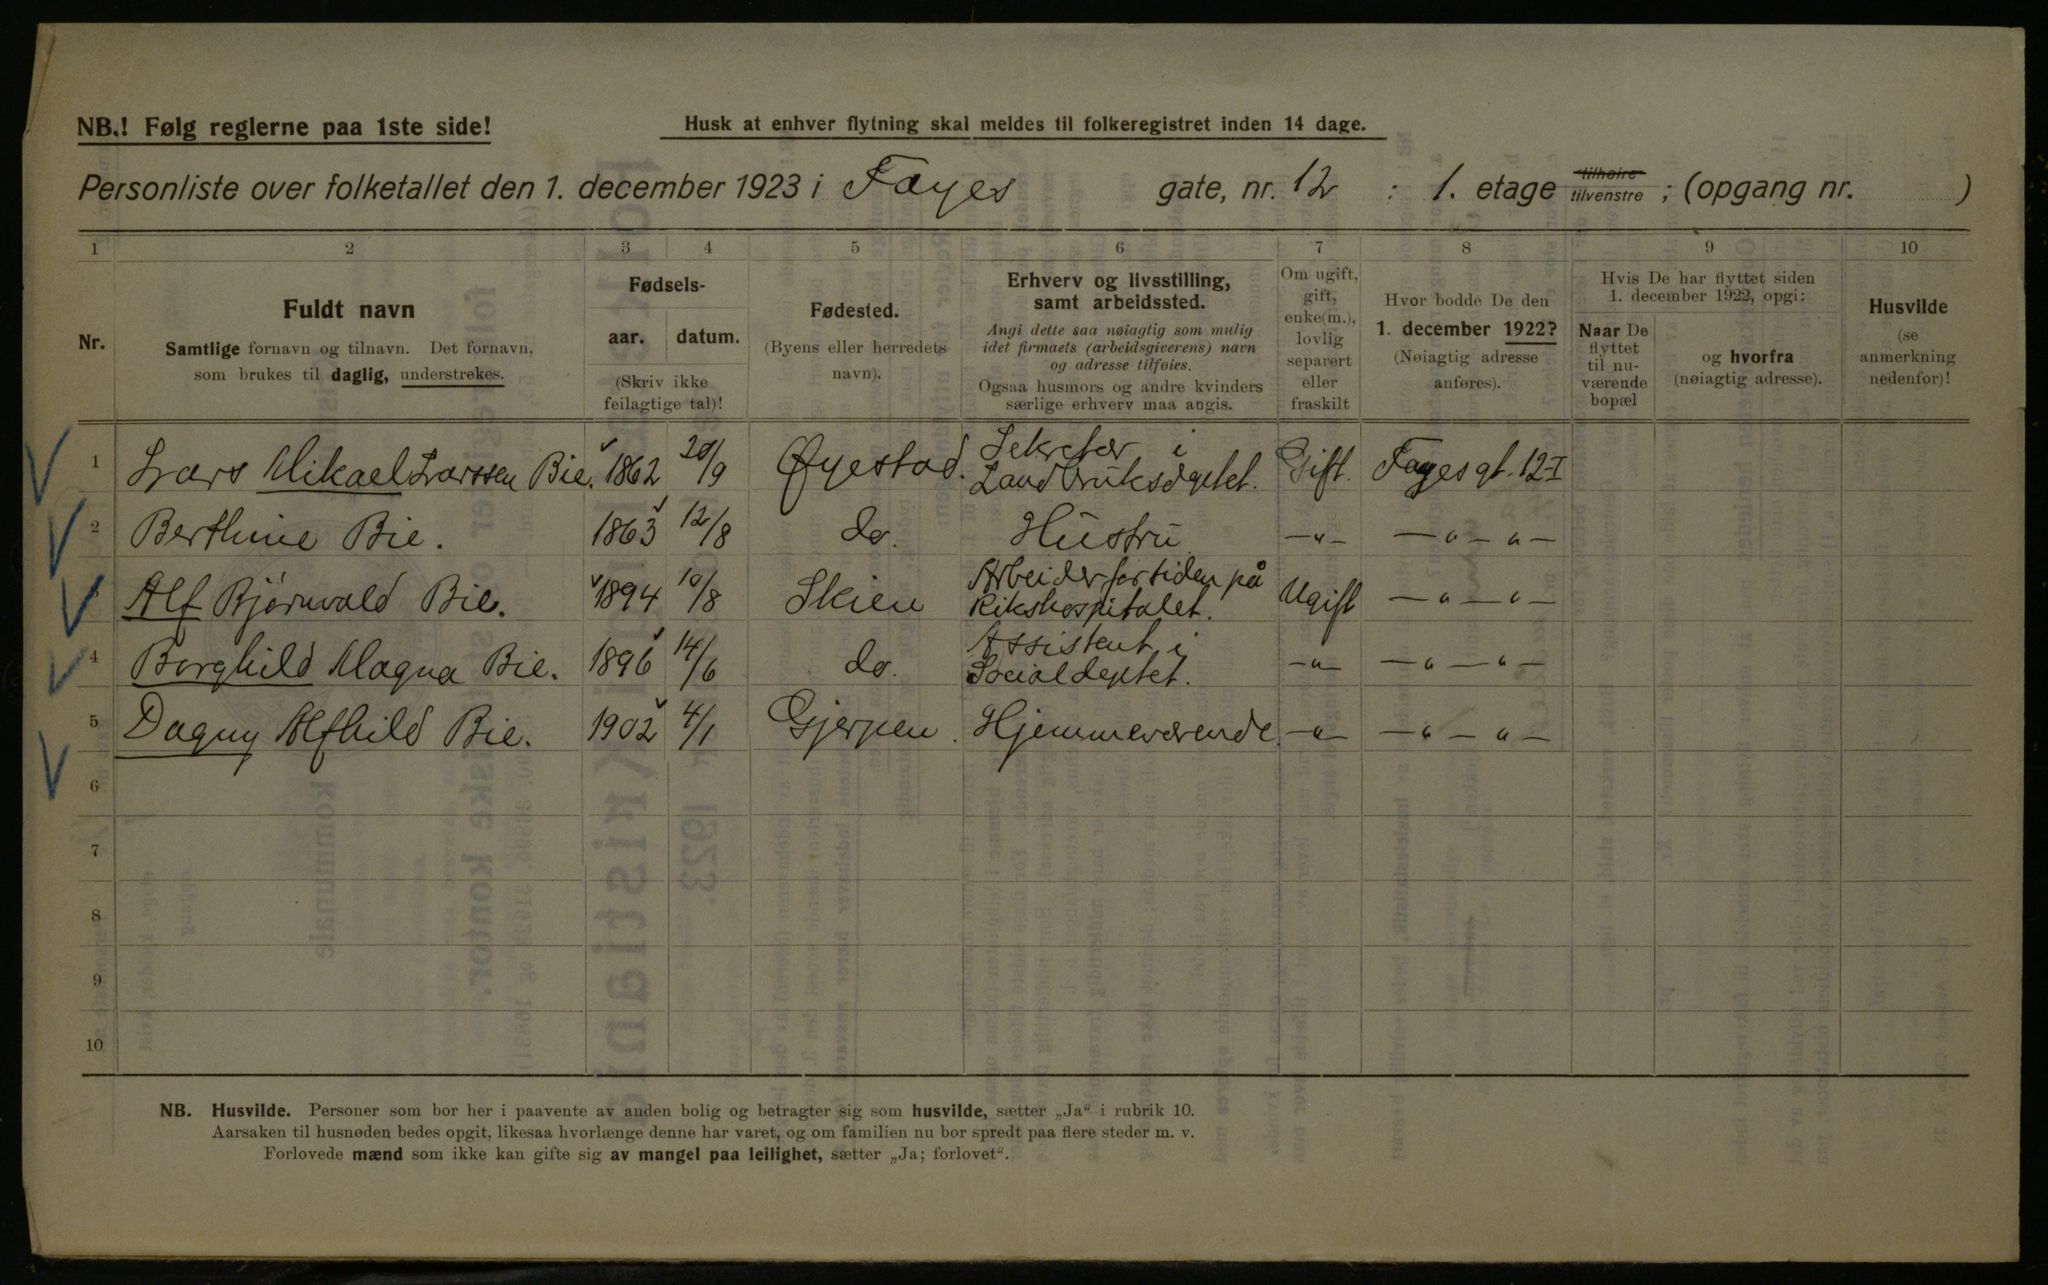 NB.! Følg reglerne paa 1ste side!
Husk at enhver flytning skal meldes til folkeregistret inden 14 dage.
Personliste over folketallet den 1. december 1923 i Fayes gate, nr. 12 : 1. etage tilhøire tilvenstre ; (opgang nr. )
1 2 3 4 5 6 7 8 9 10
Nr.
Fuldt navn
Samtlige fornavn og tilnavn. Det fornavn,
som brukes til daglig, understrekes.
Fødsels-
aar. datum.
(Skriv ikke
feilagtige tal)!
Fødested.
(Byens eller herredets
navn).
Erhverv og livsstilling,
samt arbeidssted.
Angi dette saa nøiagtig som mulig
idet firmaets (arbeidsgiverens) navn
og adresse tilføies.
Ogsaa husmors og andre kvinders
særlige erhverv maa angis.
Om ugift,
gift,
enke(m.),
lovlig
separert
eller
fraskilt
Hvor bodde De den
1. december 1922?
(Nøiagtig adresse
anføres).
Hvis De har flyttet siden
1. december 1922, opgi:
Naar De
flyttet
til nu-
værende
bopæl
og hvorfra
(nøiagtig adresse).
Husvilde
(se
anmerkning
nedenfor)!
1 Lars Mikael Larssen Bie. 1862 20/9 Øyestad. Sekretær i Landbruksdeptet. Gift. Fayesgt. 12-I
2 Berthine Bie. 1863 12/8 do. Hustru -"- -"-"-
3 Alf Bjørnvald Bie. 1894 10/8 Skien Arbeider for tiden på Rikshospitalet. Ugift -"-"-
4 Borghild Magna Bie. 1896 14/6 do. Assistent i Socialdeptet. -"- -"-"-
5 Dagny Alfhild Bie. 1902 4/1 Gjerpen. Hjemmeværende. -"- -"-"-
6
7
8
9
10
NB. Husvilde. Personer som bor her i paavente av anden bolig og betragter sig som husvilde, sætter „Ja“ i rubrik 10.
Aarsaken til husnøden bedes opgit, likesaa hvorlænge denne har varet, og om familien nu bor spredt paa flere steder m. v.
Forlovede mænd som ikke kan gifte sig av mangel paa leilighet, sætter „Ja; forlovet“.